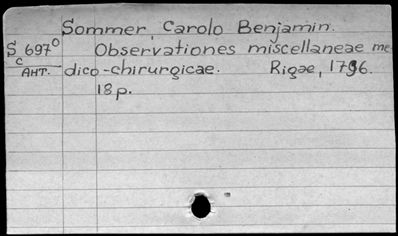 Sommer, Carolo Benjamin.
S 697⁰ Observationes miscellaneae me
c
Ант. dico-chirurgicae. Rigae, 1796.
18p.